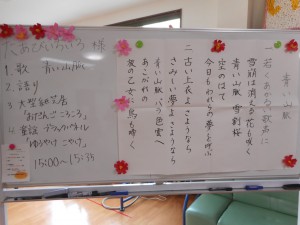 大あびいろいろ 様
1 歌 青い山脈
2 語り
3 大型紙芝居
「おだんごころころ」
4 童謡
「ゆりかご
15:00～15:33
青い山脈
一 若くあかるい歌声に
雪崩は消える 花も咲く
青い山脈 雪割桜
空のはて
今日もわれらの夢を呼ぶ
二 古い上衣よ さようなら
さみしい夢よ さようなら
青い山脈 バラ色雲へ
あこがれの
旅の乙女に 鳥も啼く